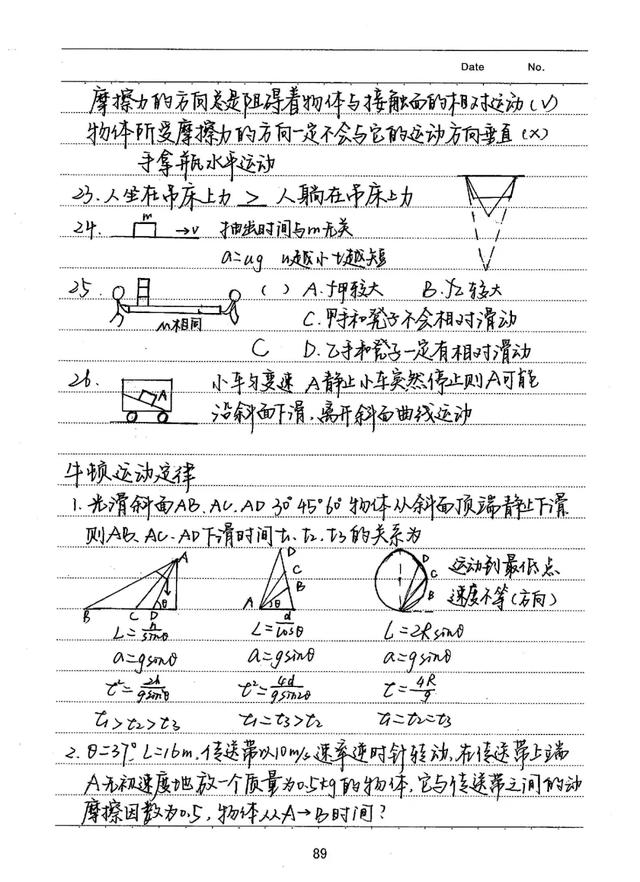 Date No.
摩擦力的方向总是阻碍着物体与接触面的相对运动(√)
物体所受摩擦力的方向一定不会与它的运动方向垂直(×)
手拿瓶水平运动
23.人坐在吊床上力 > 人躺在吊床上力
24. m →v 抽出时间与m无关
a=ug u越小t越短
25. M相同 ( ) A.f甲较大 B.f乙较大
C.甲手和凳子不会相对滑动
C D.乙手和凳子一定有相对滑动
26. A 小车匀变速 A静止小车突然停止则A可能
沿斜面下滑,离开斜面曲线运动
牛顿运动定律
1.光滑斜面AB、AC、AD 30° 45° 60° 物体从斜面顶端静止下滑
则AB、AC、AD下滑时间t₁、t₂、t₃的关系为
A B C D θ
A B C D θ d
D C B 运动到最低点
速度不等(方向)
L=h/sinθ L=d/cosθ L=2Rsinθ
a=gsinθ a=gsinθ a=gsinθ
t²=2h/gsin²θ t²=4d/gsin2θ t=4R/g
t₁>t₂>t₃ t₁=t₃>t₂ t₁=t₂=t₃
2.θ=37° L=16m,传送带以10m/s速率逆时针转动,在传送带上端
A无初速度地放一个质量为0.5kg的物体,它与传送带之间的动
摩擦因数为0.5,物体从A→B时间?
89